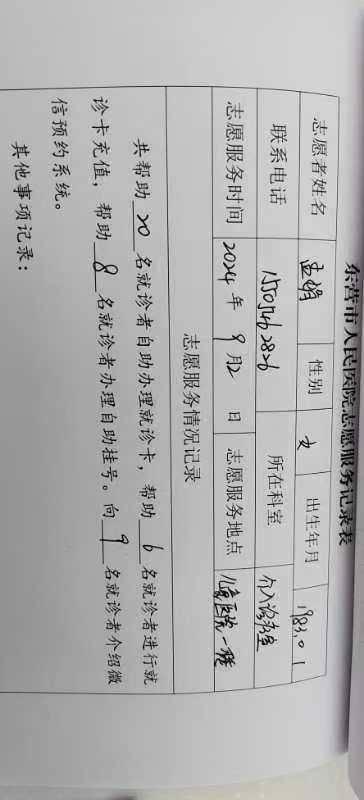 东营市人民医院志愿服务记录表
志愿者姓名 孟娟 性别 女 出生年月 1983.01
联系电话 15505462826 所在科室 介入诊疗室
志愿服务时间 2024年9月12日 志愿服务地点 儿童医院一楼
志愿服务情况记录
共帮助20名就诊者自助办理就诊卡，帮助6名就诊者进行就
诊卡充值，帮助8名就诊者办理自助挂号。向9名就诊者介绍微
信预约系统。
其他事项记录：